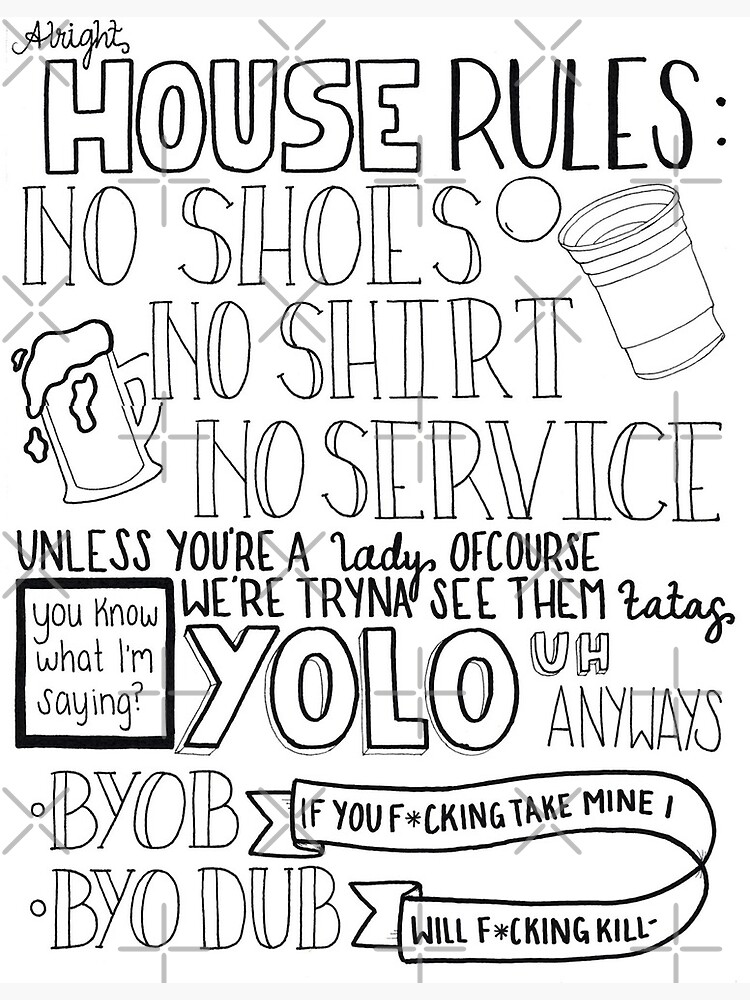 Alright,
HOUSE RULES:
NO SHOES
NO SHIRT
NO SERVICE
UNLESS YOU'RE A lady, OFCOURSE
WE'RE TRYNA SEE THEM tatas
you know
what I'm
saying?
YOLO
UH
ANYWAYS
•BYOB
IF YOU F*CKING TAKE MINE I
•BYO DUB
WILL F*CKING KILL-